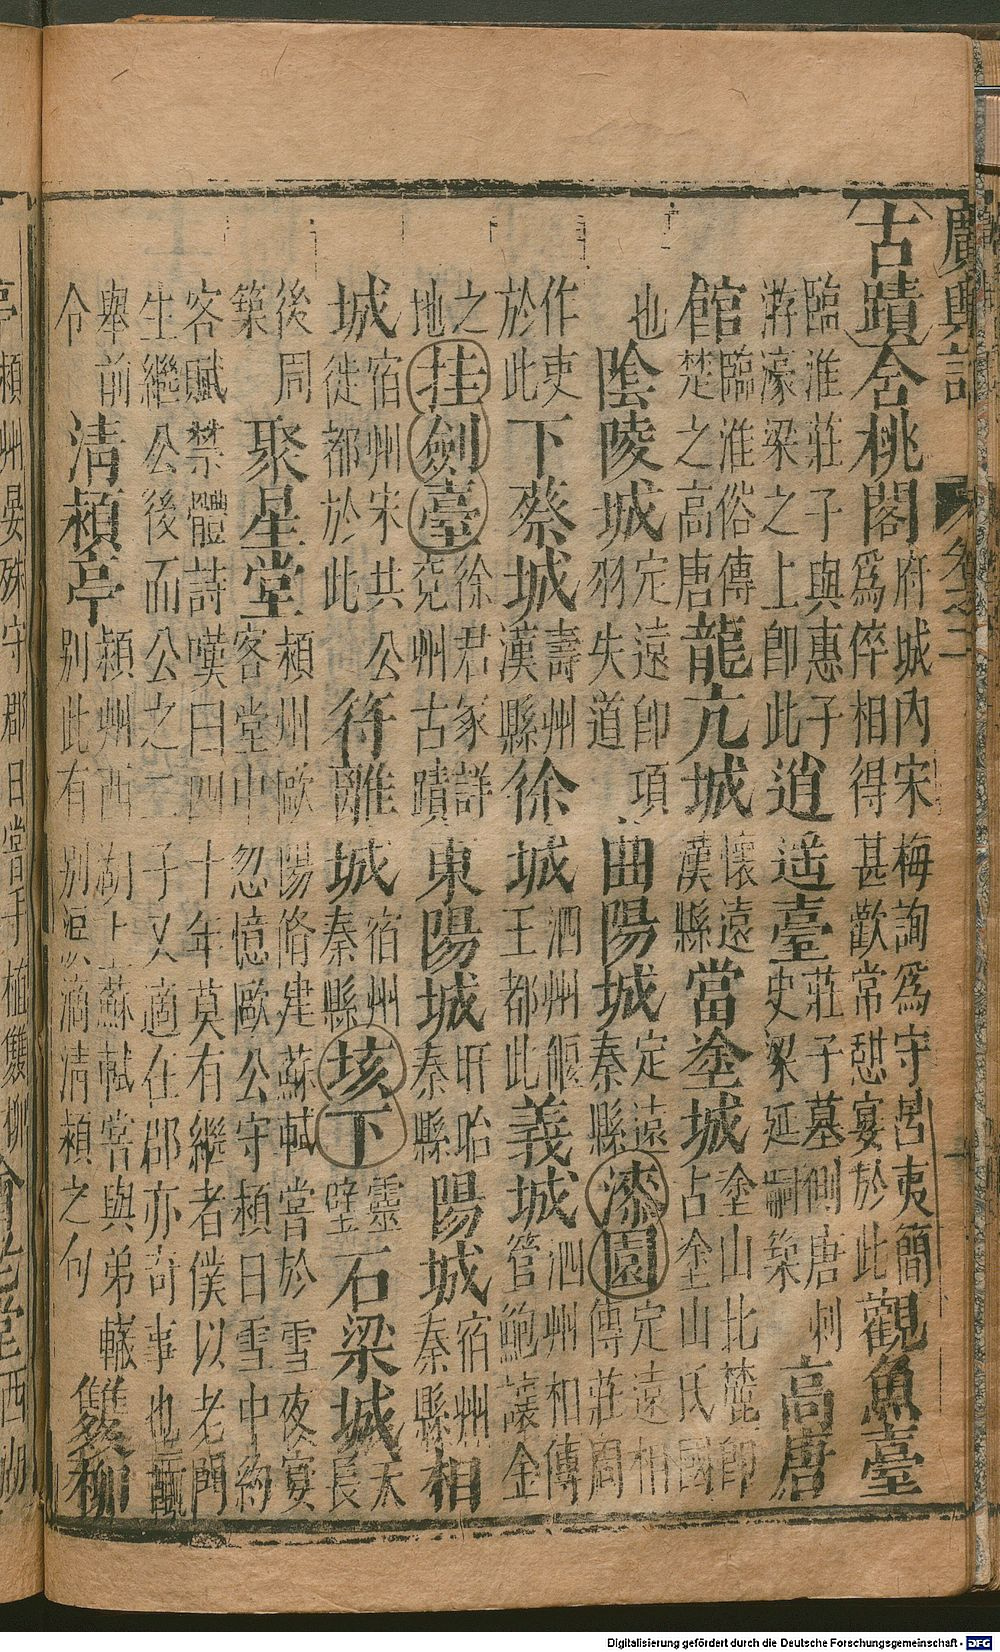 廣輿記 卷之二
古蹟 舍桃閣 府城內宋梅詢為守呂夷簡為倅相得甚歡常憇宴於此 觀魚臺
臨淮莊子與惠子游濠梁之上卽此 逍遥臺 莊子墓側唐刺史梁延嗣築 高唐
館 臨淮俗傳楚之高唐 龍亢城 懷遠漢縣 當塗城 塗山北麓卽古塗山氏國
也 陰陵城 定遠卽項羽失道 曲陽城 定遠秦縣 漆園 定遠相傳莊周
作吏於此 下蔡城 壽州漢縣 徐城 泗州偃王都此 義城 泗州相傳管鮑讓金
之地 挂劍臺 徐君冢詳兗州古蹟 東陽城 盱眙秦縣 陽城 宿州秦縣 相
城 宿州宋共公徙都於此 符離城 宿州秦縣 垓下 靈璧 石梁城 天長
後周築 聚星堂 潁州歐陽脩建蘇軾嘗於雪夜宴客堂中忽憶歐公守潁日雪中約
客賦禁體詩嘆曰四十年莫有繼者僕以老門生繼公後而公之二子又適在郡亦奇事也輒
舉前令 清潁亭 潁州西湖上蘇軾嘗與弟轍別此有別淚滴清潁之句 雙柳
亭 潁州晏殊守郡日嘗手植雙柳 會老堂 西湖
Digitalisierung gefördert durch die Deutsche Forschungsgemeinschaft - DFG